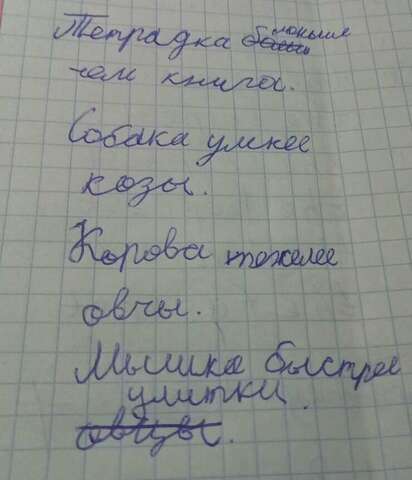 Тетрадка меньше
чем книга.
Собака умнее
козы.
Корова тежелее
овчы.
Мышка быстрее
улитки.
овцы.